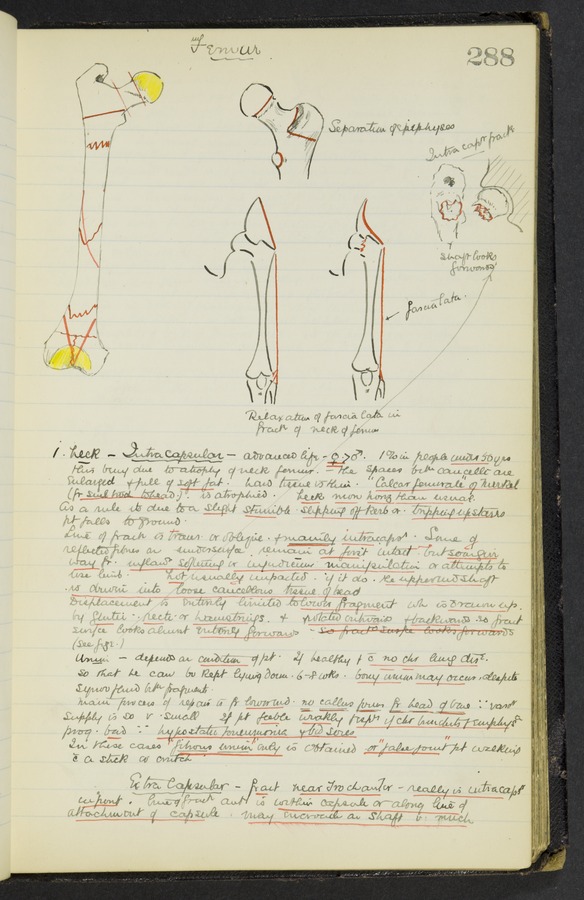 Femur.
288
Separation of epiphyses
Intra capr fractr
Shaft looks
forwards
fascia lata.
Relaxation of fascia lata in
fractr of neck of femur
1. Neck – Intracapsular – advanced life – ♀ > ♂. 1% in people under 50 yrs
this being due to atrophy of neck femur. The spaces betn cancelli are
Enlarged & full of soft fat. hard tissue is thin. "Calcar femorale" of Merkel
(fr small troch to head) is atrophied. Neck more horiz than usual.
As a rule is due to a slight stumble. slipping off kerb or tripping upstairs
pt falls to ground.
Line of fract is transv or oblique. & mainly intracapsr. Some of
reflected fibres on undersurface remain at first intact but soon give
way fr. inflamy softening or injudicious manipulation or attempts to
use limb. Not usually impacted. if it do. the upper end shaft
is driven into loose cancellous tissue of head
Displacement is entirely limited to lower fragment wh is drawn up
by glutei: recti: or hamstrings. & rotated outwards & backwards so fract
surface looks almost entirely forwards
(See fig 2.)
Union – depends on condition of pt. If healthy & c no chr lung dis.
so that he can be kept lying down. 6-8 wks. bony union may occur. despite
synov fluid betn fragments.
main process of repair is fr lower end. no callus forms fr head of bone ∵ vasr
supply is so v. small If pt feeble weakly & chr bronchitis & emphysa
prog. bad ∵ hypostatic pneumonia & bed sores.
In these cases "fibrous union" only is obtained or "false joint" pt walking
c a stick or crutch
Extra Capsular – fract near Trochanter – really is intracapr
in front. line of fract ant is within capsule or along line of
attachment of capsule. may encroach on shaft b. much.